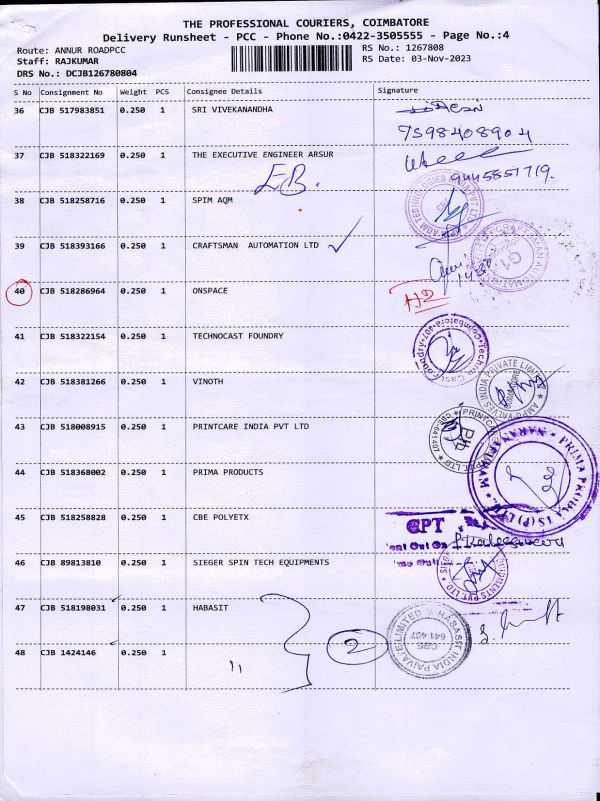 THE PROFESSIONAL COURIERS, COIMBATORE
Delivery Runsheet - PCC - Phone No.:0422-3505555 - Page No.:4
Route: ANNUR ROADPCC RS No.: 1267808
Staff: RAJKUMAR RS Date: 03-Nov-2023
DRS No.: DCJB126780804
S No Consignment No Weight PCS Consignee Details Signature
36 CJB 517983851 0.250 1 SRI VIVEKANANDHA
7598408904
37 CJB 518322169 0.250 1 THE EXECUTIVE ENGINEER ARSUR
EB. 9445857719.
38 CJB 518258716 0.250 1 SPIM AQM
39 CJB 518393166 0.250 1 CRAFTSMAN AUTOMATION LTD
G1
40 CJB 518286964 0.250 1 ONSPACE
41 CJB 518322154 0.250 1 TECHNOCAST FOUNDRY
42 CJB 518381266 0.250 1 VINOTH
43 CJB 518008915 0.250 1 PRINTCARE INDIA PVT LTD
44 CJB 518368002 0.250 1 PRIMA PRODUCTS
45 CJB 518258828 0.250 1 CBE POLYETX
CPT
46 CJB 89813810 0.250 1 SIEGER SPIN TECH EQUIPMENTS
47 CJB 518198031 0.250 1 HABASIT
HABASIT INDIA PRIVATE LIMITED
CBE
641 407
2
48 CJB 1424146 0.250 1 "